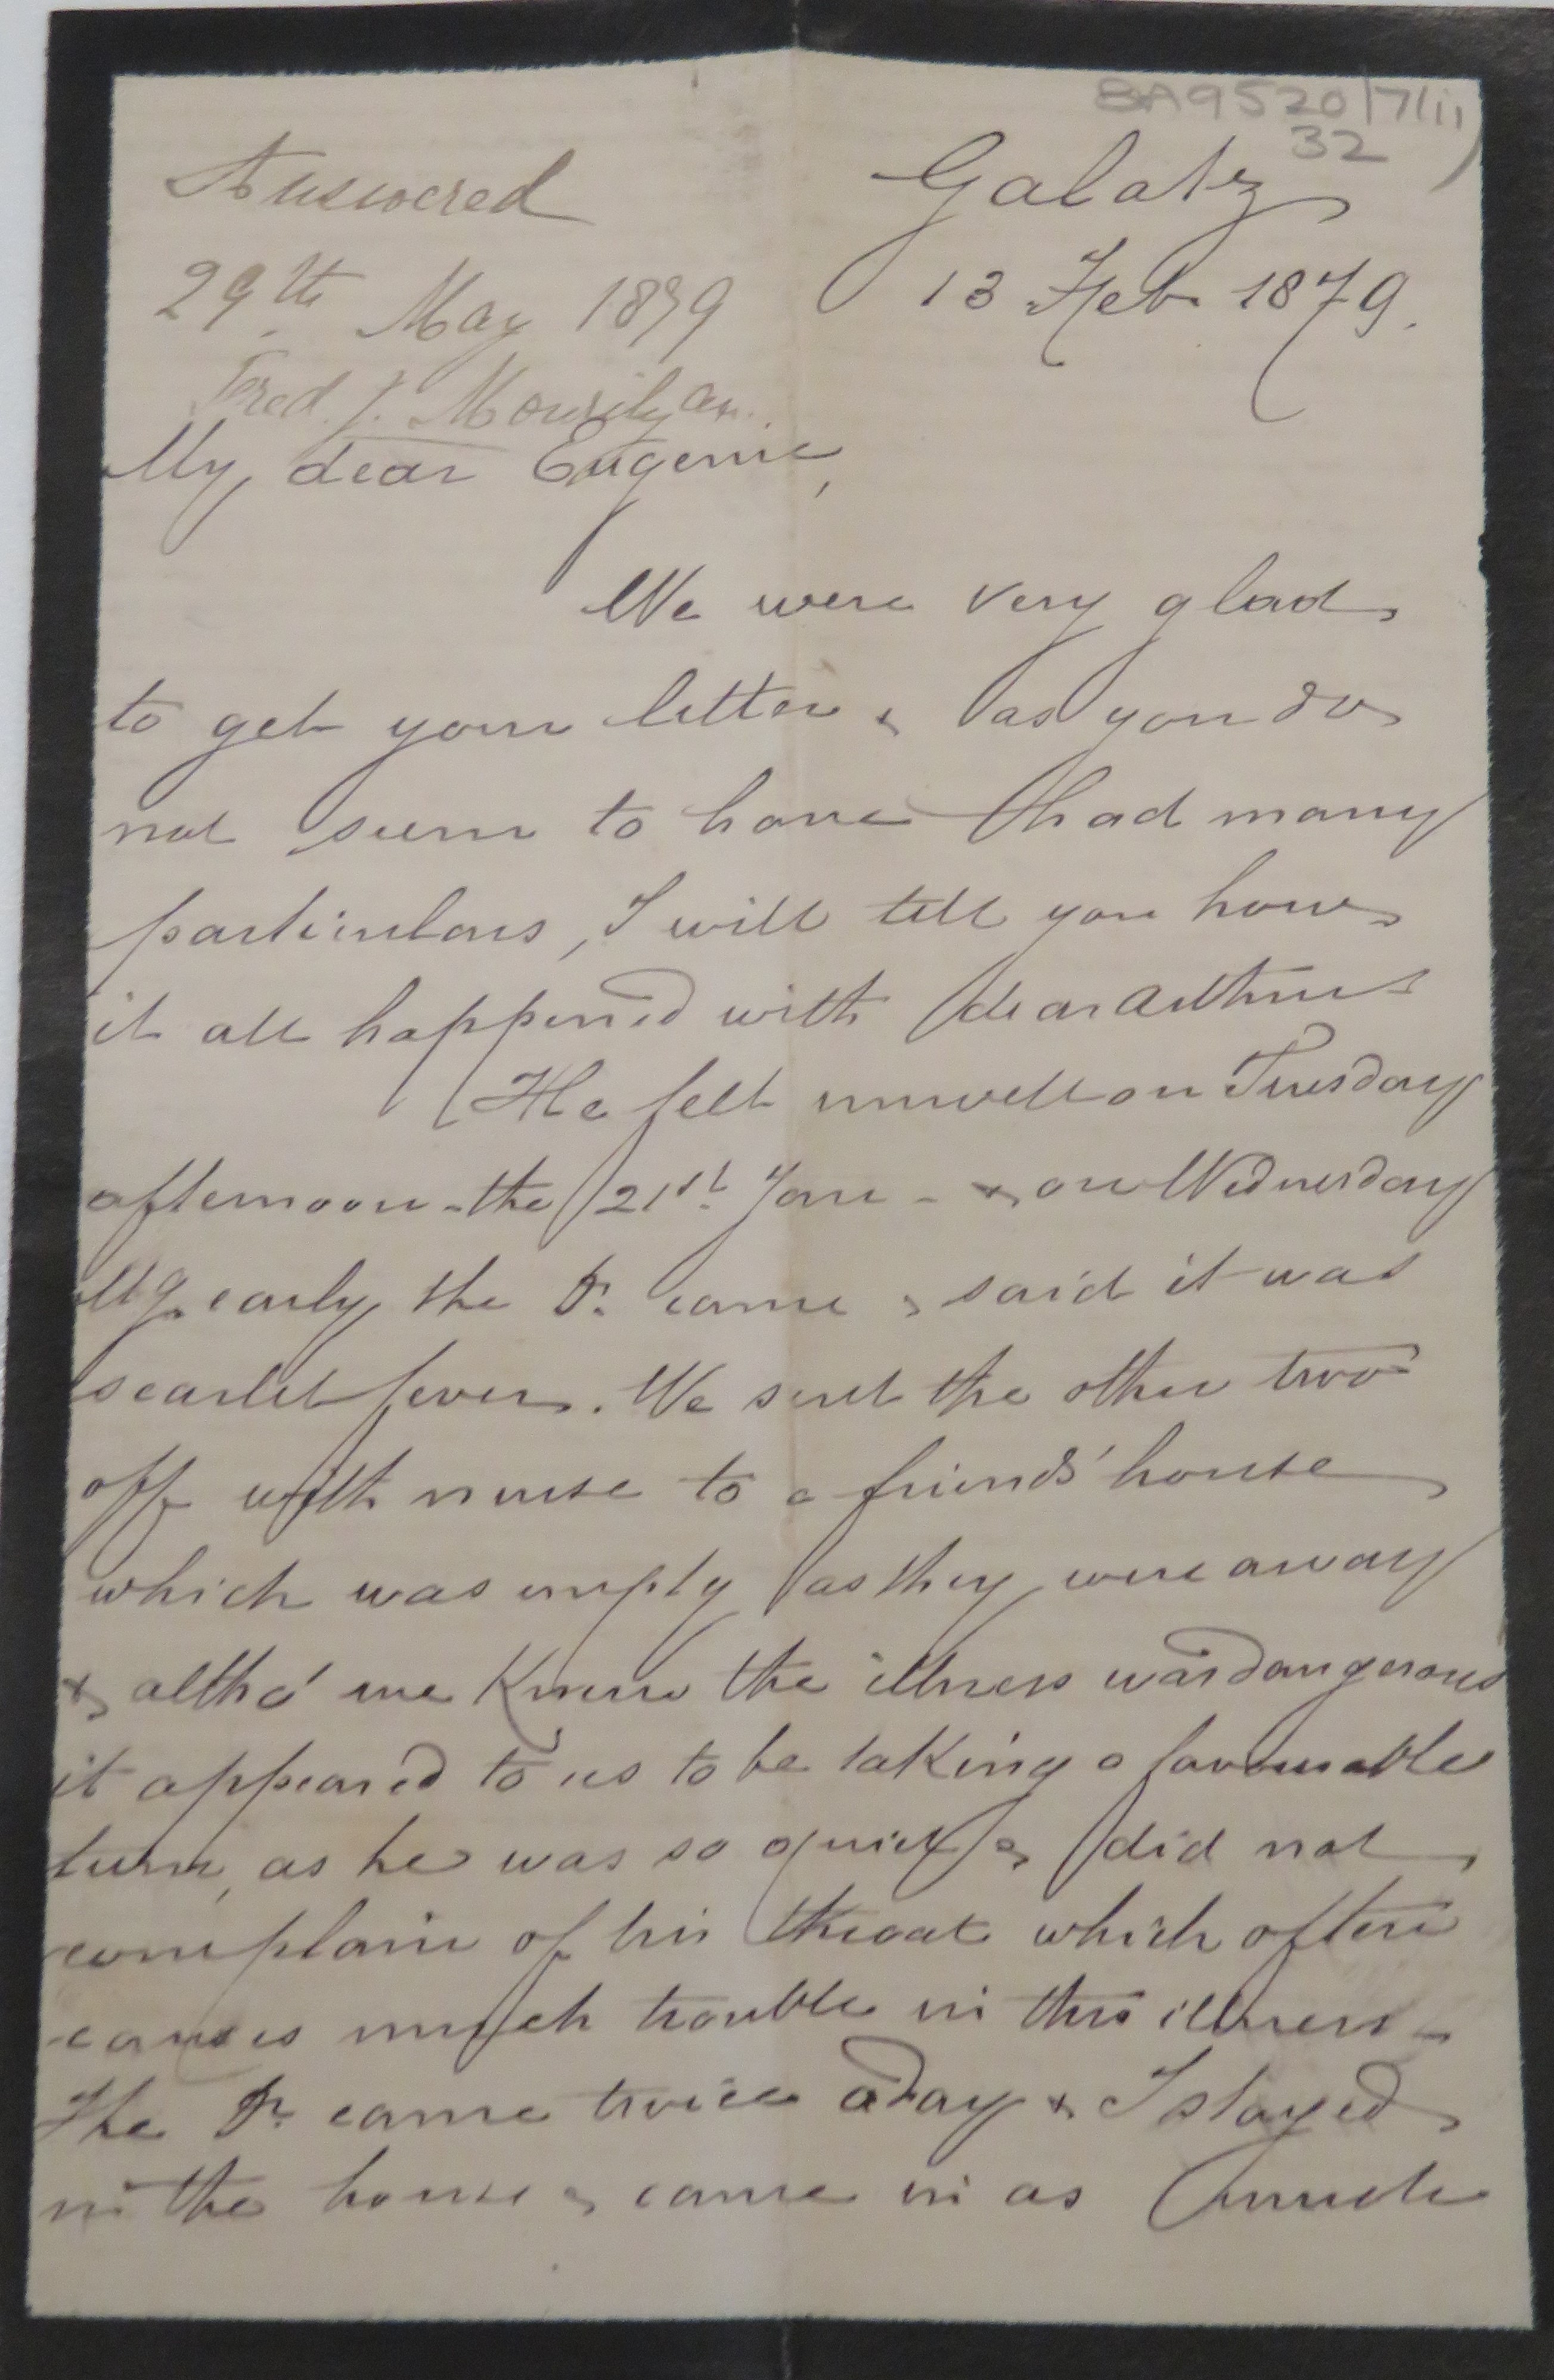 BA9520/7/ii)
32
Answered
29th May 1879
Fred. J. Mourilyan.
Galatz
13 Feb 1879.
My dear Eugenie,
We were very glad
to get your letter & as you do
not seem to have had many
particulars, I will tell you how
it all happened with dear Arthur
He felt unwell on Tuesday
afternoon - the 21st Jan - & on Wednesday
Mg early the Dr. came & said it was
scarlet fever. We sent the other two
off with nurse to a friends' house
which was empty as they were away
& altho' we knew the illness was dangerous
it appeared to us to be taking a favourable
turn, as he was so quiet & did not
complain of his throat which often
causes much trouble in this illness -
The Dr. came twice a day & I stayed
in the house & came in as much